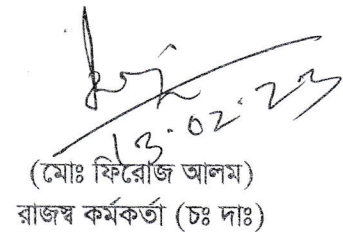 13.02.23
(মোঃ ফিরোজ আলম)
রাজস্ব কর্মকর্তা (চঃ দাঃ)